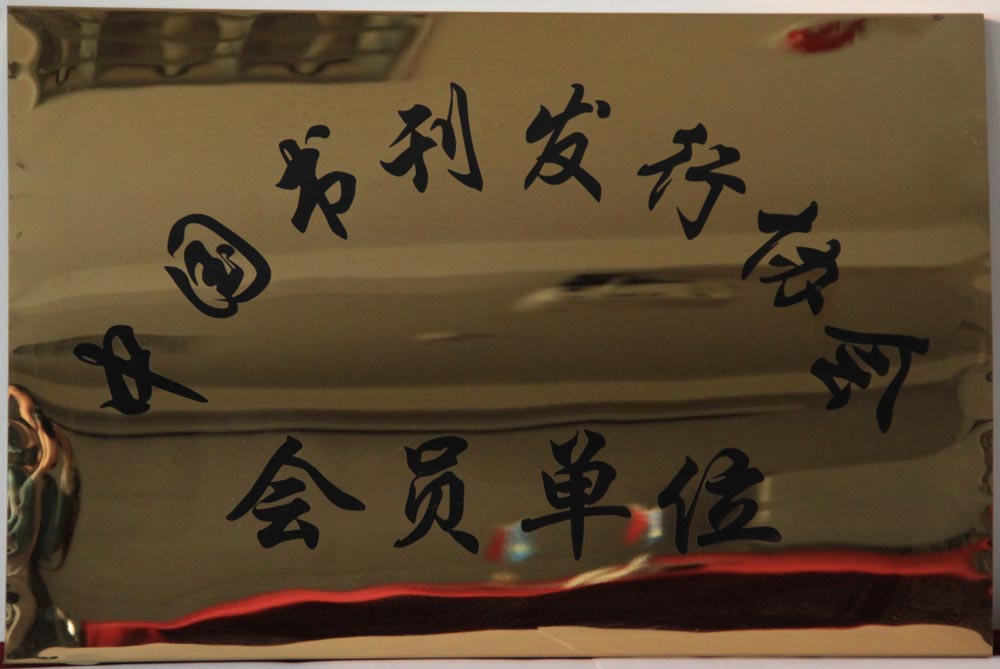 中国书刊发行协会
会员单位